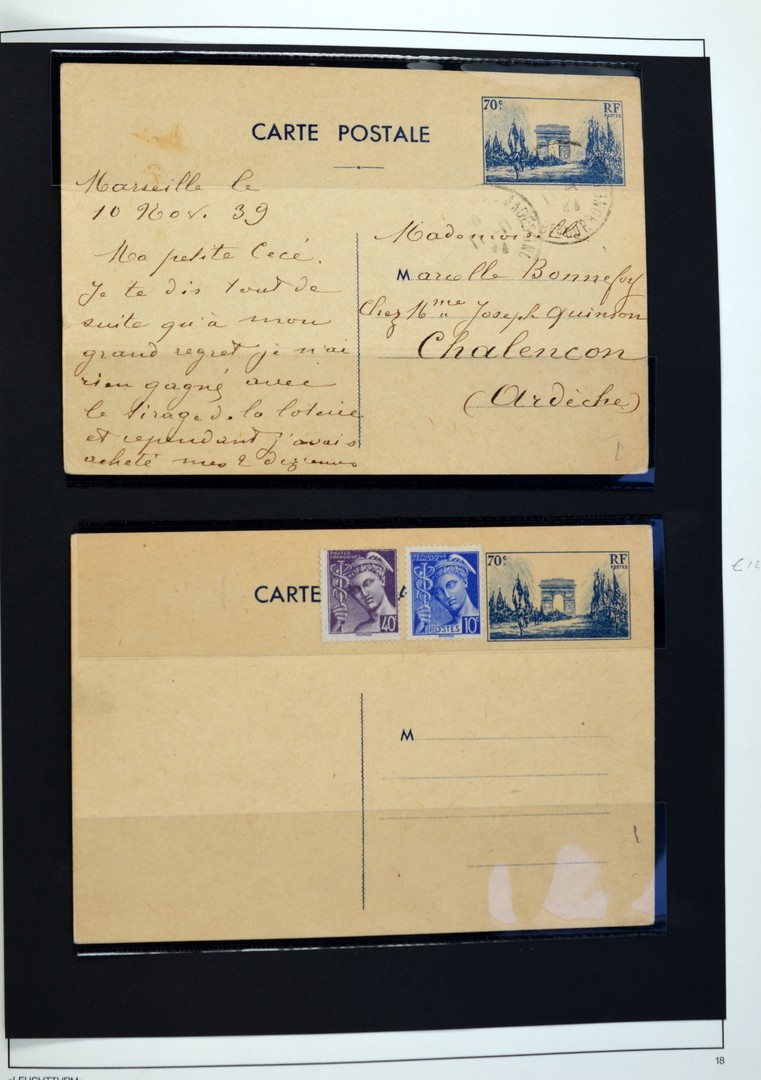 CARTE POSTALE
70c
RF
POSTES
Marseille le
10 Nov. 39
Ma petite Cecé.
Je te dis tout de
suite qu'à mon
grand regret je n'ai
rien gagné avec
le tirage de la loterie
et cependant j'avais
acheté mes 2 dixièmes
Mademoiselle
Marcelle Bonnefoy
Chez Mme Joseph Quinson
Chalencon
(Ardèche)
CARTE
POSTES FRANÇAISES
40c
RÉPUBLIQUE FRANÇAISE
POSTES 10c
70c
RF
POSTES
M
£12
18
LEUCHTTURM